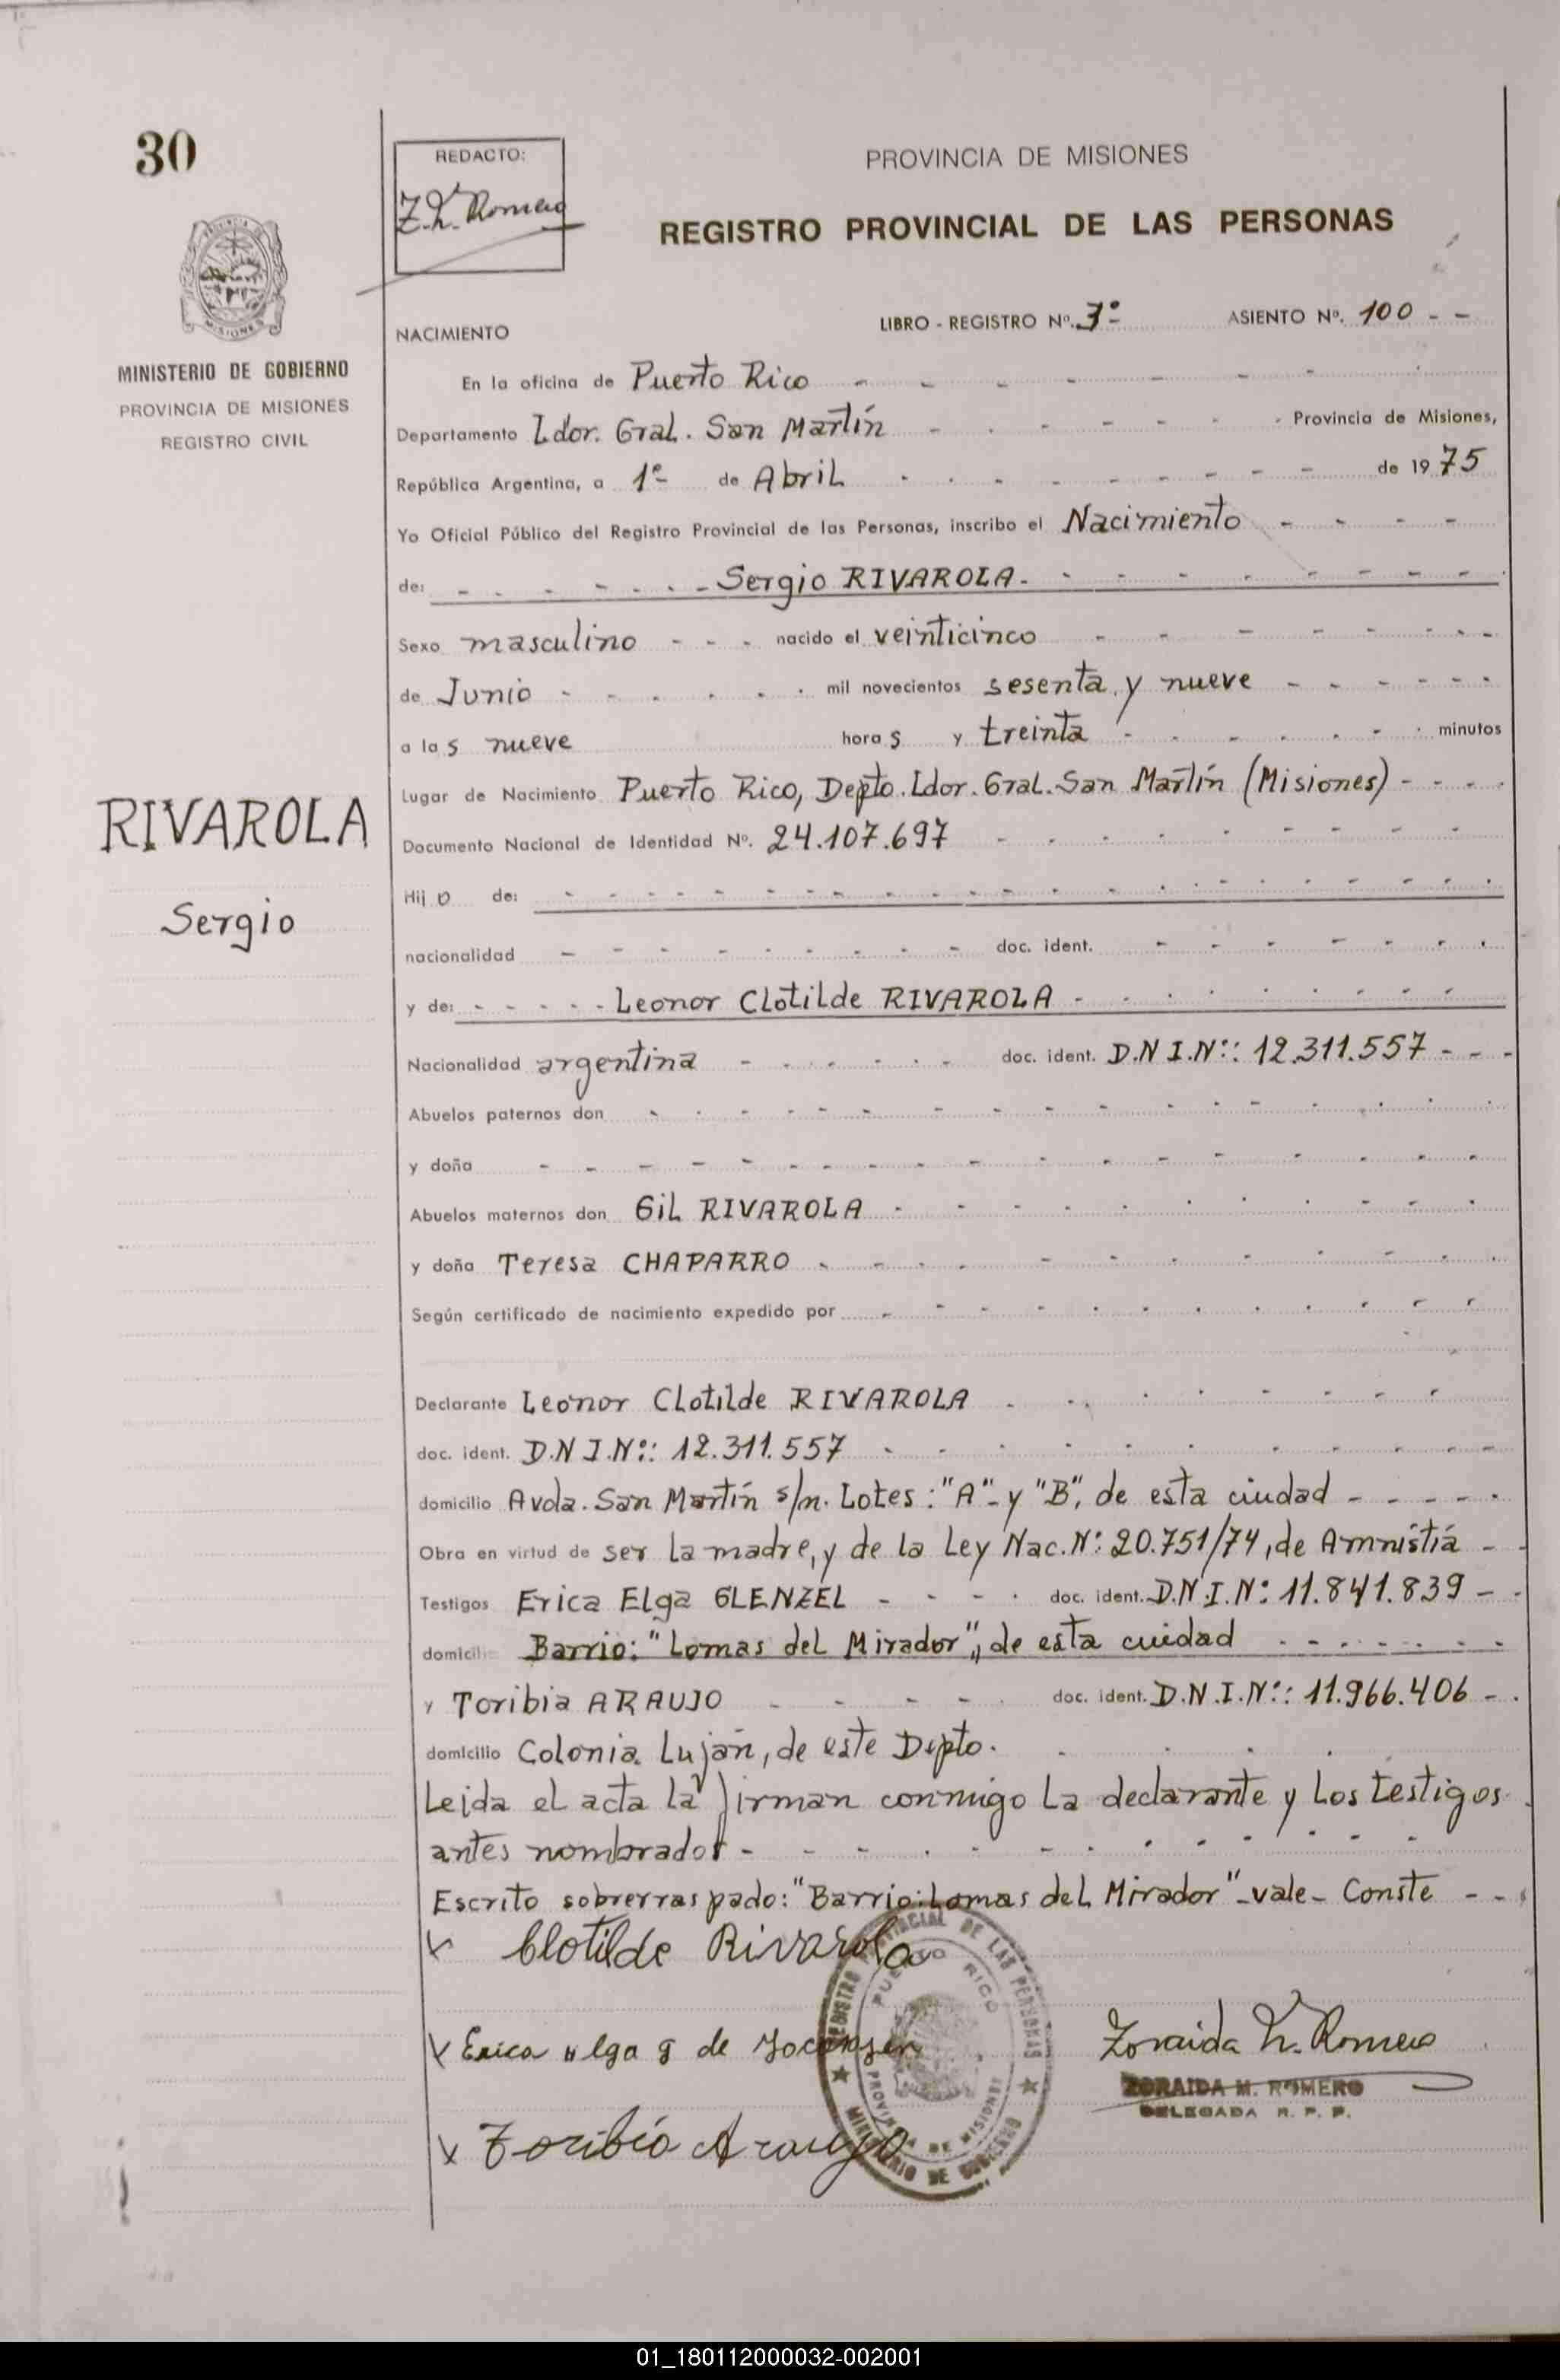 30
REDACTO:
Z. M. Romero
PROVINCIA DE MISIONES
REGISTRO PROVINCIAL DE LAS PERSONAS
MISIONES
MINISTERIO DE GOBIERNO
PROVINCIA DE MISIONES
REGISTRO CIVIL
LIBRO - REGISTRO Nº. 3º ASIENTO Nº. 100 - -
NACIMIENTO
En la oficina de Puerto Rico
Departamento Ldor. Gral. San Martín Provincia de Misiones,
República Argentina, a 1º de Abril de 1975
Yo Oficial Público del Registro Provincial de las Personas, inscribo el Nacimiento
de: Sergio RIVAROLA.
Sexo masculino nacido el veinticinco
de Junio mil novecientos sesenta y nueve
a las nueve horas y treinta minutos
Lugar de Nacimiento Puerto Rico, Depto. Ldor. Gral. San Martín (Misiones)
RIVAROLA
Sergio
Documento Nacional de Identidad Nº. 24.107.697
Hijo de:
nacionalidad doc. ident.
y de: Leonor Clotilde RIVAROLA
Nacionalidad argentina doc. ident. D.N I.Nº: 12.311.557
Abuelos paternos don
y doña
Abuelos maternos don Gil RIVAROLA
y doña Teresa CHAPARRO
Según certificado de nacimiento expedido por
Declarante Leonor Clotilde RIVAROLA
doc. ident. D.N I.Nº: 12.311.557
domicilio Avda. San Martín s/n. Lotes: "A"- y "B", de esta ciudad
Obra en virtud de ser la madre, y de la Ley Nac. Nº 20.751/74, de Amnistía
Testigos Erica Elga GLENZEL doc. ident. D.N.I.Nº 11.841.839
domicilio Barrio: "Lomas del Mirador", de esta cuidad
y Toribia ARAUJO doc. ident. D.N.I.Nº: 11.966.406
domicilio Colonia Luján, de este Depto.
Leida el acta la firman conmigo la declarante y los testigos
antes nombrados
Escrito sobrerraspado: "Barrio: Lomas del Mirador" - vale - Conste
x Clotilde Rivarola
REGISTRO PROVINCIAL DE LAS PERSONAS
PUERTO RICO
PROVINCIA DE MISIONES
MINISTERIO DE GOBIERNO
x Erica elga g de
Zoraida M. Romero
ZORAIDA M. ROMERO
DELEGADA R. P. P.
x Toribia Araujo
01_180112000032-002001